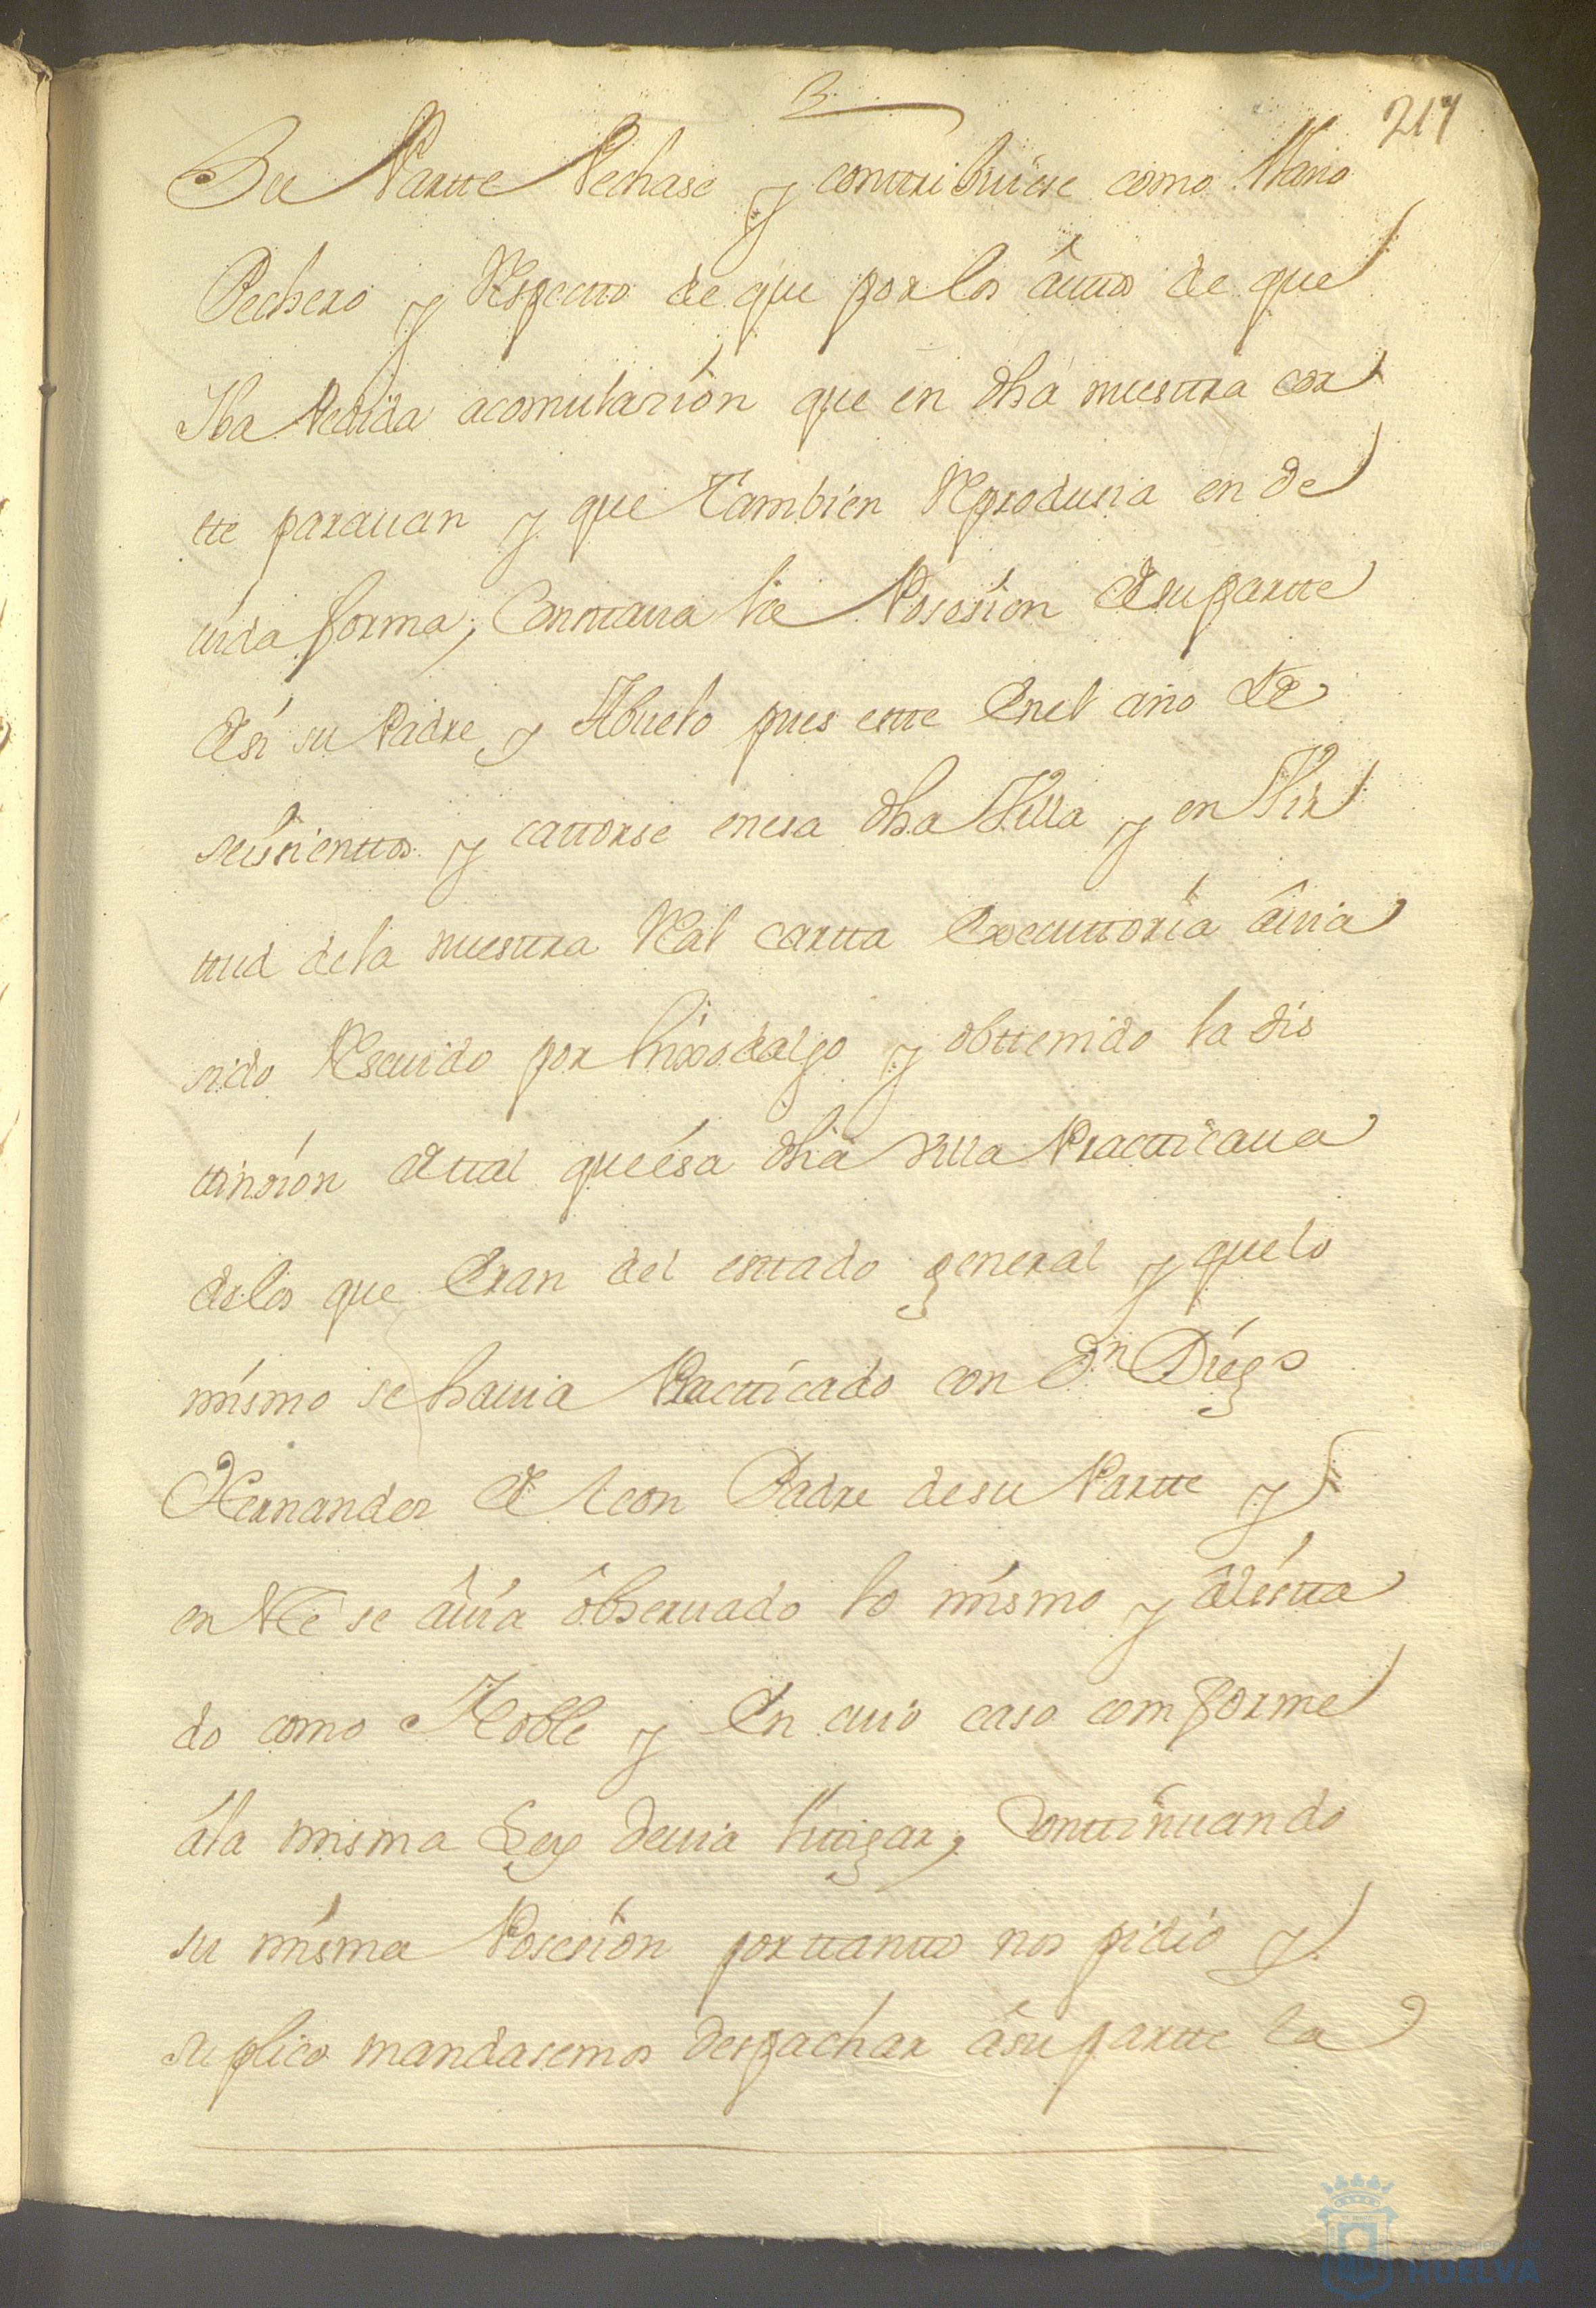 3
217
Su Partte Pechase y conttribuiese como Llano
Pechero y Respectto de que por los âuttos de que
Iba Pedida acomulazion que en dha nuestra Cor
tte parauan y que Tambien Reproduzia en de
uida forma, Conttaua la Posesion de su partte
de si su Padre, y Abuelo pues este en el año de
seiscienttos y cattorse en esa dha Villa y en Vir
ttud de la nuestra Real cartta Executtoria âuia
sido Reseuido por hixosdalgo y obttenido la dis
ttinsion attual que ésa dha Villa Practticaua
de los que Eran del esttado general y que lo
mismo se hauia Practticado con Dn Diego
Hernandez de Leon Padre de su Partte y
en Rê se âuia ôbseruado lo mismo y âlistta
do como Noble y En cuio caso comforme
âla misma Ley deuia littigar, Conttinuando
su misma Posesion por ttantto nos pidio y
suplico mandasemos despachar âsu partte la
Ayuntamiento de
HUELVA